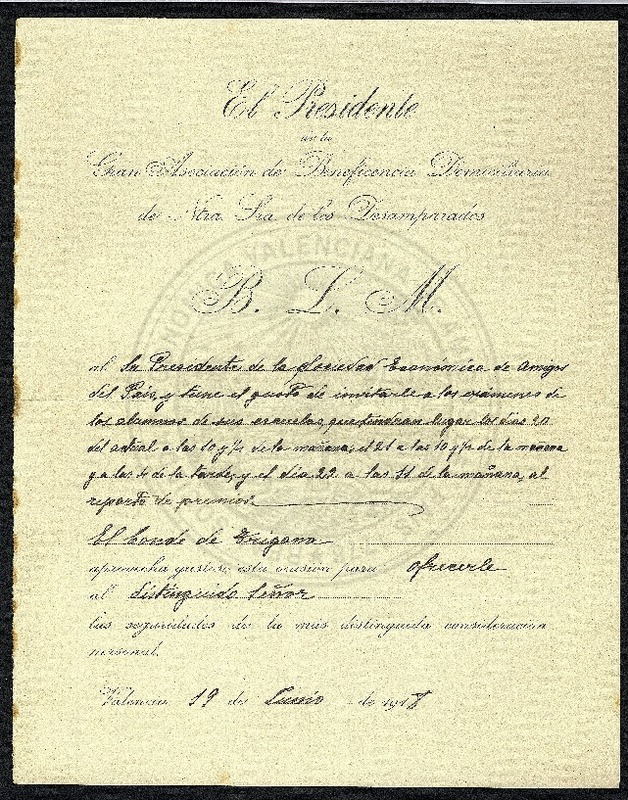 El Presidente
de la
Gran Asociación de Beneficencia Domiciliaria
de Ntra. Sra. de los Desamparados
B. L. M.
al Sr Presidente de la Sociedad Económica de Amigos
del País, y tiene el gusto de invitarle a los exámenes de
los alumnos de sus escuelas, que tendrán lugar los días 20
del actual a las 10 y ½ de la mañana; el 21 a las 10 y ½ de la mañana
y a las 4 de la tarde, y el día 22 a las 11 de la mañana, al
reparto de premios.
El Conde de Trigona
aprovecha gustoso esta ocasión para ofrecerle
al distinguido Señor
las seguridades de la más distinguida consideración
personal.
Valencia 19 de Junio de 191
VALENCIANA